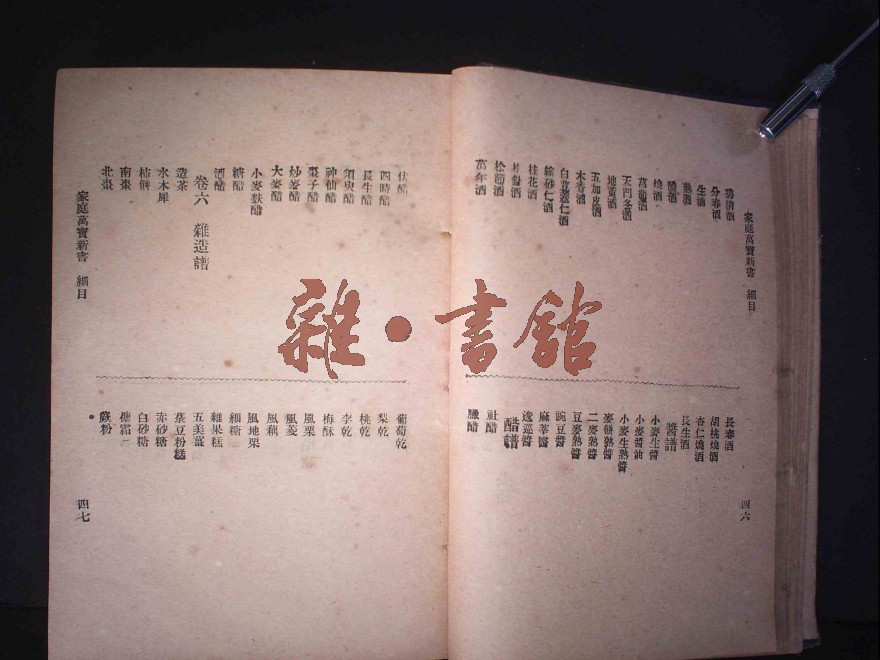 家庭萬寶新書　細目
碧清酒
分春酒
生酒
熟酒
醴酒
燒酒
葛蒲酒
天門冬酒
地黃酒
五加皮酒
木香酒
白荳蔲仁酒
縮砂仁酒
桂花酒
松節酒
萬年酒
長春酒
胡桃燒酒
杏仁燒酒
長生酒
醬譜
小麥生醬
小麥醬油
小麥生熟醬
麥餅熟醬
二麥熟醬
豆麥熟醬
豌豆醬
麻莘醬
逡巡醬
醋譜
社醋
臘醋
四六
伏醋
四時醋
長生醋
須臾醋
神仙醋
棗子醋
炒麥醋
大麥醋
小麥麩醋
糖醋
酒醋
卷六　雜造譜
造茶
水木犀
柿餅
南棗
北棗
葡萄乾
梨乾
桃乾
李乾
梅酥
風栗
風菱
風藕
風地栗
細糖
雜果糕
五美薑
菉豆粉糕
赤砂糖
白砂糖
糖霜
蕨粉
家庭萬寶新書　細目
四七
雜·書館